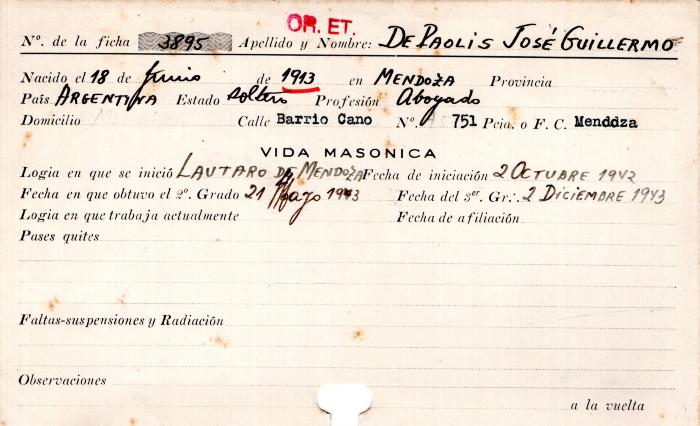 OR. ET.
Nº. de la ficha 3895 Apellido y Nombre: DE PAOLIS JOSÉ GUILLERMO
Nacido el 18 de Junio de 1913 en MENDOZA Provincia
País ARGENTINA Estado soltero Profesión Abogado
Domicilio Calle Barrio Cano Nº. 751 Pcia. o F. C. Mendoza
VIDA MASONICA
Logia en que se inició LAUTARO DE MENDOZA Fecha de iniciación 2 OCTUBRE 1942
Fecha en que obtuvo el 2º. Grado 21 Mayo 1943 Fecha del 3er. Gr∴ 2 DICIEMBRE 1943
Logia en que trabaja actualmente Fecha de afiliación
Pases quites
Faltas-suspensiones y Radiación
Observaciones
a la vuelta